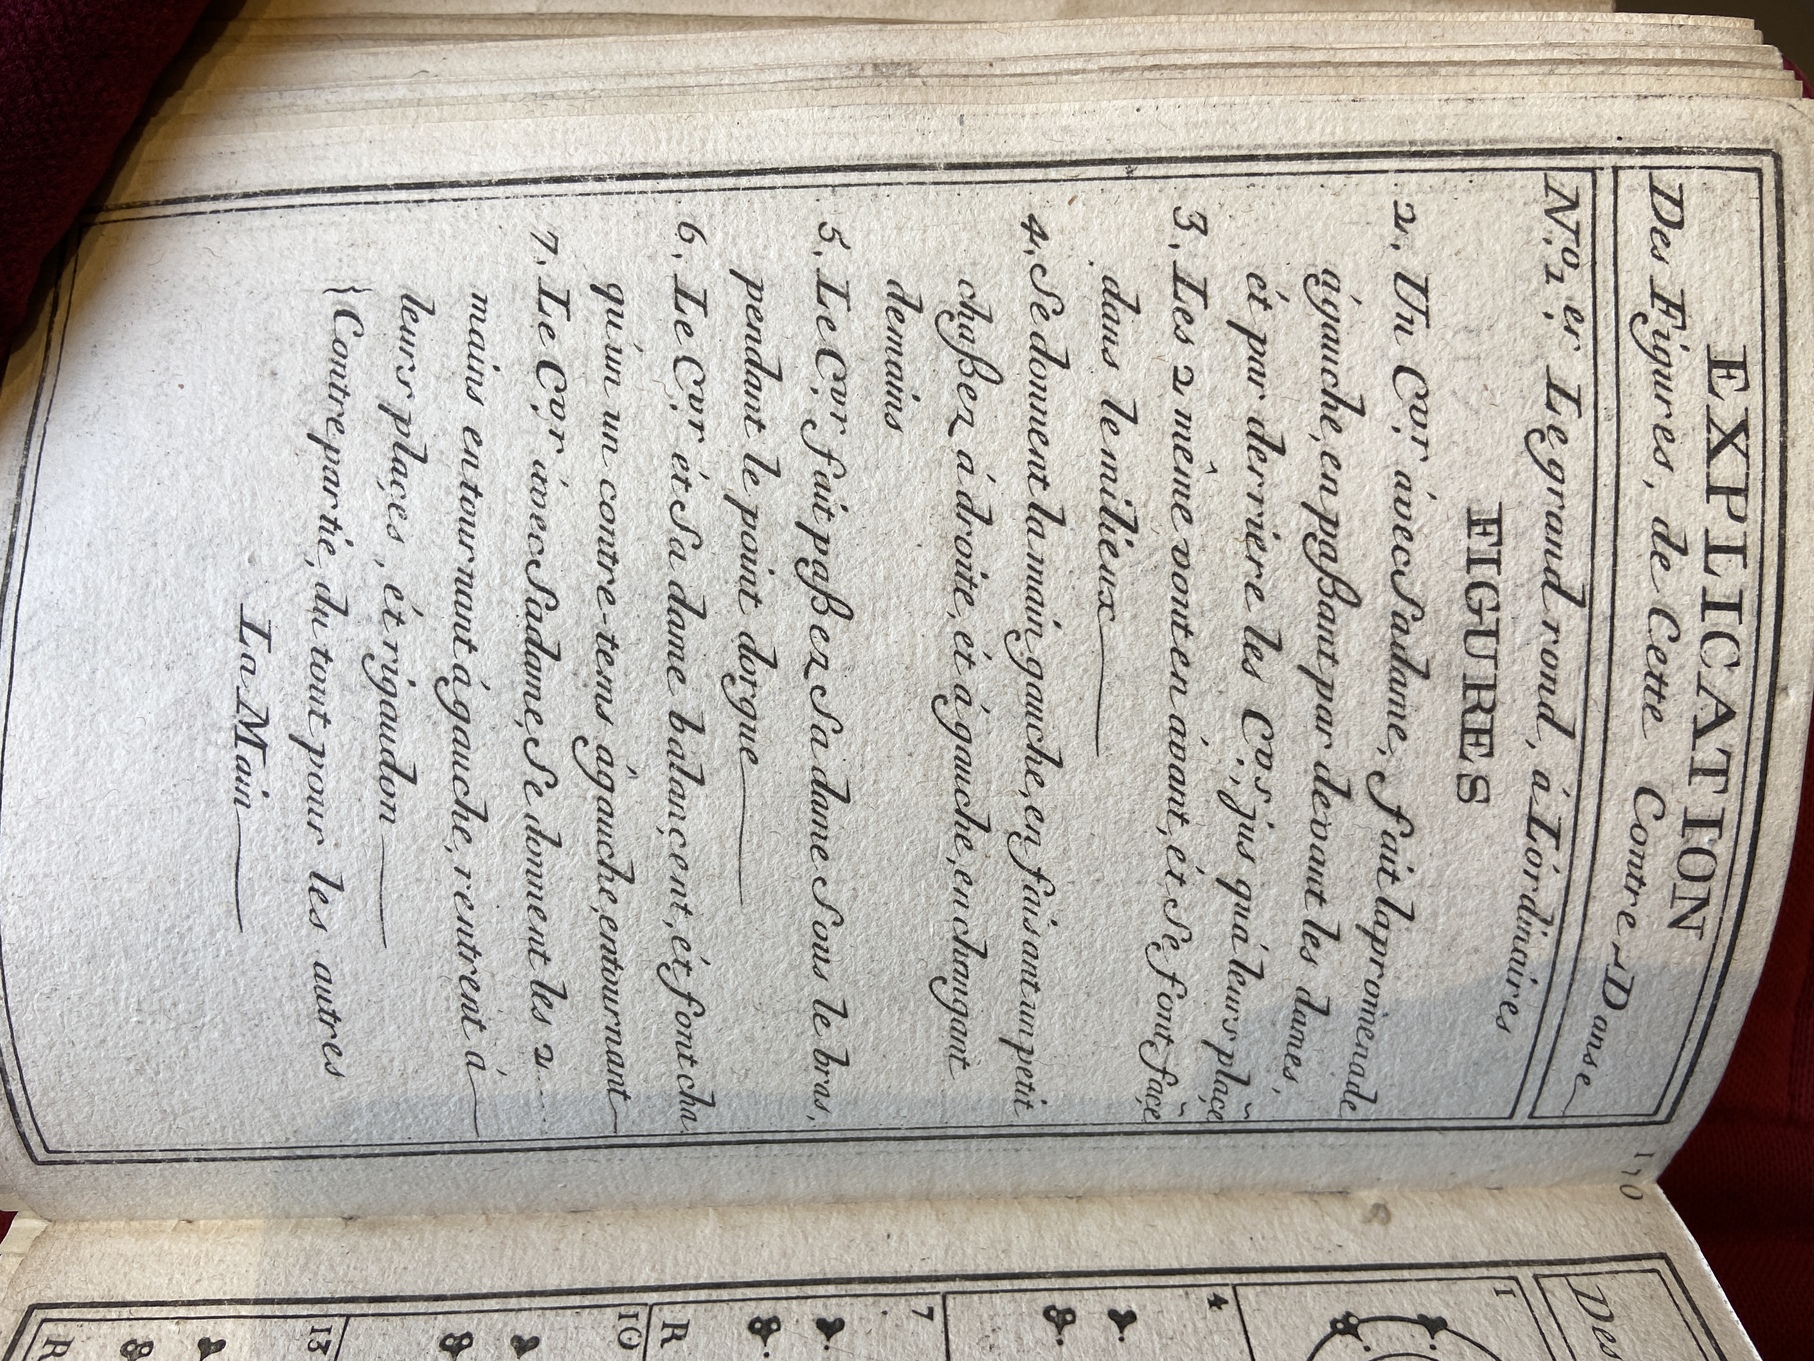 170
EXPLICATION
Des Figures, de Cette Contre-Danse
N.º 1.er Le grand rond, á L'órdinaires
FIGURES
2. Un Cor. ávec Sadame, fait lapromenade
ágauche, en paßant par devant les dames,
ét par derriere les Cos., jus quá leurs plaçe
3. Les 2 même vont en ávant, ét Se font façe
dans le milieux
4. Se donnent la main gauche, en faisant un petit
chaßez á droite, ét á gauche, en changant
demains
5. Le Cor. fait paßez Sa dame Sous le bras,
pendant le point dorgue
6. Le Cor. ét Sa dame balançent, ét font cha
qu'un un contre-tems ágauche, entournant
7. Le Cor. ávec Sadame, Se donnent les 2
mains entournant á gauche, rentrent á
leurs plaçes, ét rigaudon
{Contrepartie, du tout pour les autres
La Main
Des
1
4
7
R
10
13
R